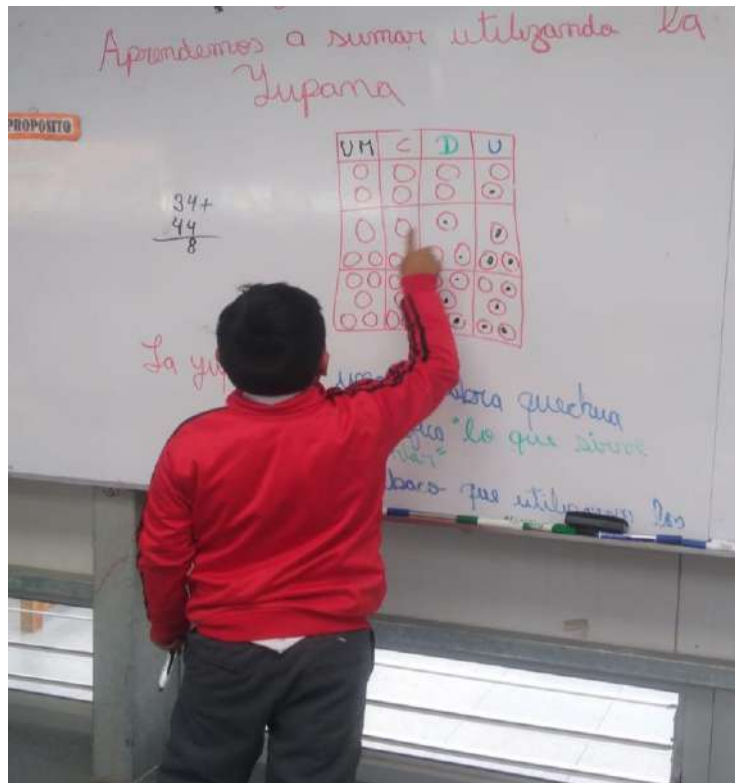 Aprendemos a sumar utilizando la
Yupana
PROPOSITO
UM C D U
34+
44
8
La
quechua
"lo que sirve
que utilizaron los